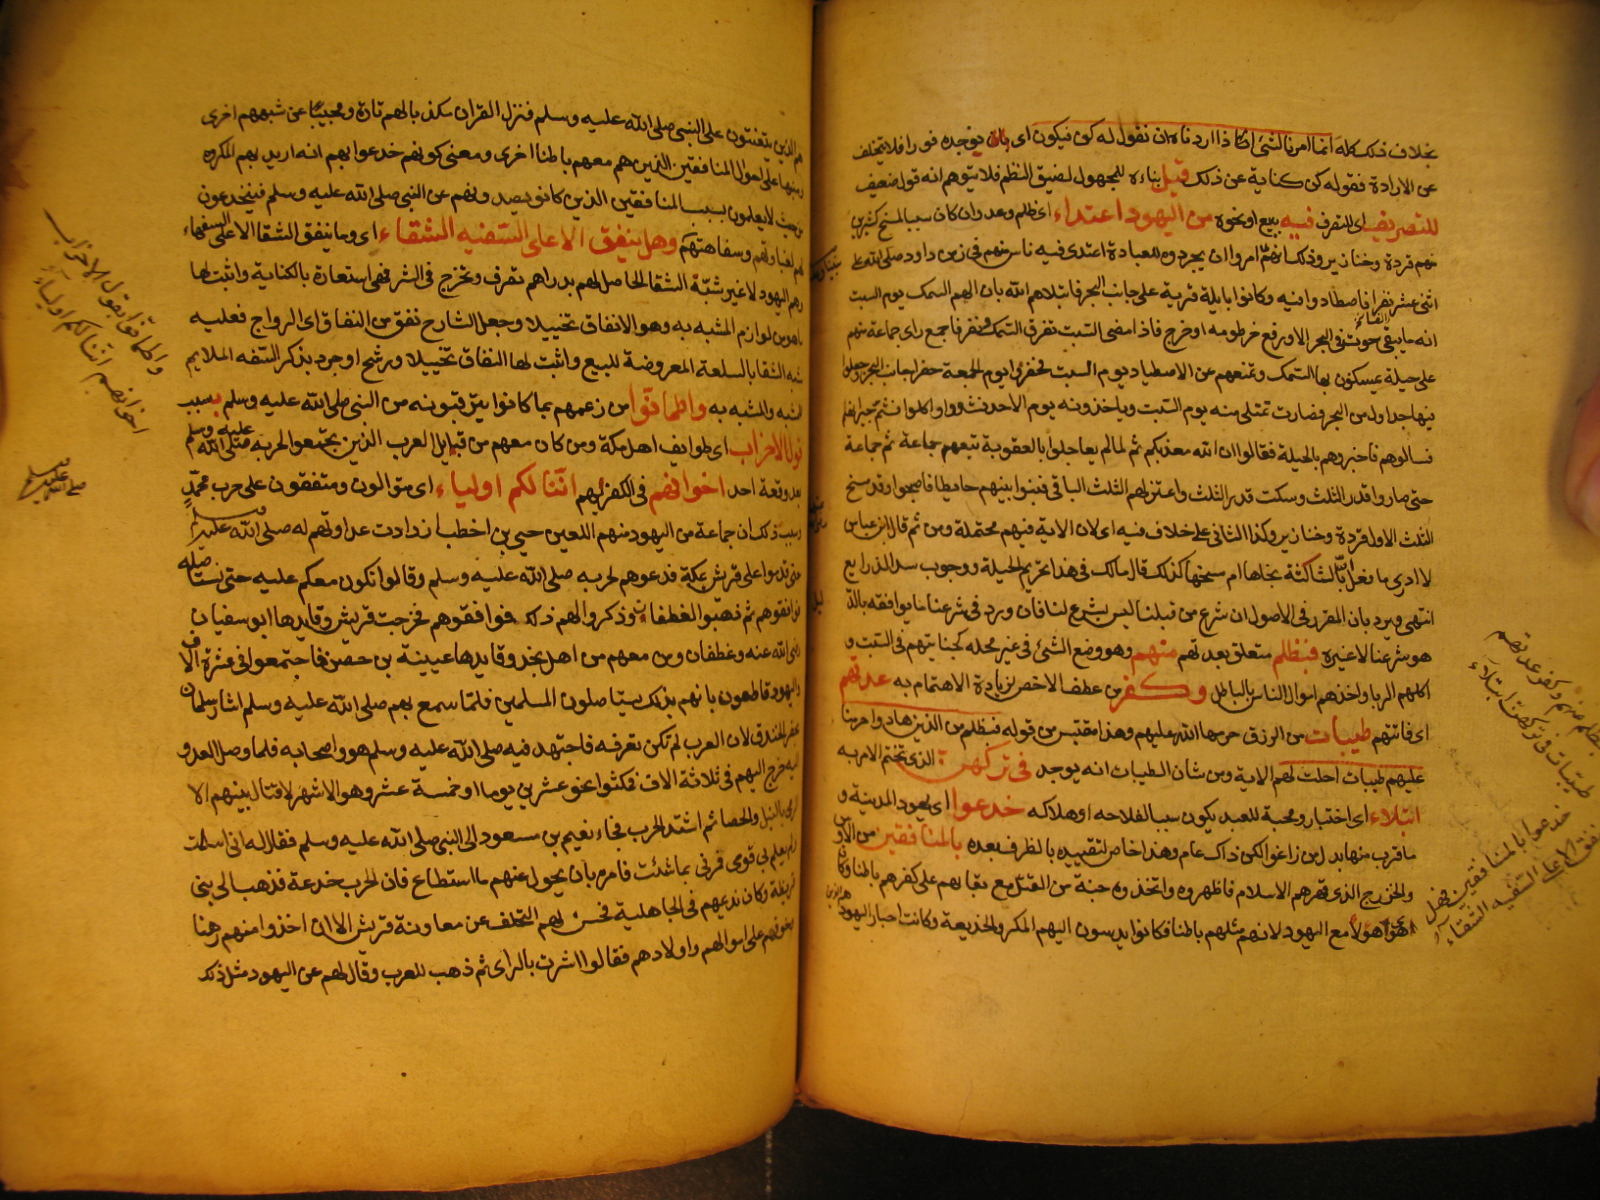 بخلاف ذلك كله انما امرنا لشئ اذا اردناه ان نقول له كن فيكون اى يوجده فورا فلا يتخلف
عن الارادة فقوله كن كناية عن ذلك قيل بناءه للمجهول لضيق النظم فلا يتوهم انه قول ضعيف
للتصريف اى التصرف فيه ببيع او نحوه من اليهود اعتداء اى ظلم وعدوان كان سببا لمسخ كثيرين
منهم قردة وخنازير وذلك انهم امروا ان يجردوه للعبادة اعتدى فيه ناس منهم فى زمن داود صلى الله على
فاصطادوا فيه وكانوا بايلة قرية على جانب البحر فابتلاهم الله بان الهم السمك يوم السبت
انه ما يبقى حوت فى البحر الا ورفع خرطومه او خرج فاذا مضى السبت تفرق السمك فجمع راى جماعة منهم
على حيلة يمسكون بها السمك وتمنعهم عن الاصطياد يوم السبت فحفروا يوم الجمعة حفرا بجانب البحر وجعلوا
منه يوم السبت وياخذونه يوم الاحد فشووا واكلوا فشم جيرانهم
فسالوهم فاخبروهم بالحيلة فقالوا ان الله معذبكم ثم لما لم يعاجلوا بالعقوبة تبعهم جماعة ثم جماعة
حتى صاروا قدر الثلث وسكت قدر الثلث واعتزلهم الثلث الباقى فبنوا بينهم حايطا فاصبحوا وقد مسخ
الثلث الاول قردة وخنازير وكذا الثانى على خلاف فيه اى لان الاية فيهم محتملة ومن ثم قال ابن عباس
لا ادرى ما فعل بالساكتة نجاها ام مسخها كذلك قال مالك فى هذا تحريم الحيلة ووجوب سد الذرايع
انتهى ويرد بان المقرر فى الاصول ان شرع من قبلنا ليس بشرع لنا فان ورد فى شرعنا ما يوافقه
هو شرعنا لا غيره فبظلم متعلق بعدتهم منهم وهو وضع الشئ فى غير محله كخيانتهم فى السبت و
اكلهم الربا واخذهم اموال الناس بالباطل وكفر من عطف الاخص لزيادة الاهتمام به عدتهم
اى فاتتهم طيبات من الرزق حرمها الله عليهم وهذا مقتبس من قوله فبظلم من الذين هادوا حرمنا
عليهم طيبات احلت لهم الاية ومن شان الطيبات انه يوجد فى تركهن الذى تحتم الامر به
ابتلاء اى اختبار ومحبة للعبد يكون سببا لفلاحه او هلاكه خدعوا اى يهود المدينة و
ما قرب منها بدل من زاغوا لكن ذاك عام وهذا خاص لتقييده بالظرف بعده بالمنافقين من الاوس
والخزرج الذى قهرهم الاسلام فاظهروه واتخذوه جنة من القتل مع بقائهم على كفرهم باطنا وكان
هؤلاء مع اليهود لانهم مثلهم باطنا فكانوا يدسون اليهم المكر والخديعة وكانت احبار اليهود
بظلم منهم وكفر عدتهم
طيبات فى تركهن ابتلاء
خدعوا بالمنافقين وهل
ينفق الا على السفيه الشقاء
هم الذين يتعنتون على النبى صلى الله عليه وسلم فنزل القران مكذبا لهم تارة ومجيبا عن شبههم اخرى
ومنبها على احوال المنافقين الذين هم معهم باطنا اخرى ومعنى كونهم خدعوا بهم انه اريد بهم المكروه
من حيث لا يعلمون بسبب المنافقين الذين كانوا يصدونهم عن النبى صلى الله عليه وسلم فينخدعون
لهم لغباوتهم وسفاهتهم وهل ينفق الا على السفيه الشقاء اى وما ينفق الشقا الا على السفهاء
وهم اليهود لا غير شبه الشقا الحاصل لهم بدراهم تصرف وتخرج فى الشر فهى استعارة بالكناية واثبت لها
ما هو من لوازم المشبه به وهو الانفاق تخييلا وجعل الشارح نفق من النفاق اى الرواج فعليه
شبه الشقا بالسلعة المعروضة للبيع واثبت لها النفاق تخييلا ورشح او جرد بذكر السفه الملايم
للمشبه والمشبه به واطمانوا من زعمهم بما كانوا يترقبونه من النبى صلى الله عليه وسلم بسبب
قول الاحزاب اى طوايف اهل مكة ومن كان معهم من قبايل العرب الذين تجمعوا لحربه صلى الله عليه وسلم
بعد وقعة احد اخوانهم فى الكفر انهم اننا لكم اولياء اى متوالون ومتفقون على حرب محمد
وسبب ذلك ان جماعة من اليهود منهم اللعين حيى بن اخطب ازدادت عداوتهم له صلى الله عليه وسلم
حتى قدموا على قريش بمكة فدعوهم لحربه صلى الله عليه وسلم وقالوا نكون معكم عليه حتى نستاصله
فوافقوهم ثم ذهبوا لغطفان وذكروا لهم ذلك فوافقوهم فخرجت قريش وقايدها ابو سفيان
رضى الله عنه وغطفان ومن معهم من اهل نجد وقايدها عيينة بن حصن فاجتمعوا فى عشرة الاف
واليهود قاطعون بانهم بذلك يستاصلون المسلمين فلما سمع بهم صلى الله عليه وسلم اشار سلمان
بحفر الخندق لان العرب لم تكن تعرفه فاجتهد فيه صلى الله عليه وسلم هو واصحابه فلما وصل العدو
اليه خرج اليهم فى ثلاثة الاف فمكثوا نحو عشرين يوما او خمسة عشر وهو الاشهر لا قتال بينهم الا
الرمى بالنبل والحصا ثم اشتد الحرب فجاء نعيم بن مسعود الى النبى صلى الله عليه وسلم فقال له انى اسلمت
ولم يعلم بى قومى فمرنى بما شئت فامره بان يخذل عنهم ما استطاع فان الحرب خدعة فذهب الى بنى
قريظة وكان نديمهم فى الجاهلية فحسن لهم التخلف عن معاونة قريش الا ان اخذوا منهم رهنا
على اموالهم واولادهم فقالوا اشرت بالراى ثم ذهب للعرب وقال لهم عن اليهود مثل ذلك
واطمانوا بقول الاحزاب
اخوانهم اننا لكم اولياء
صلى الله عليه وسلم